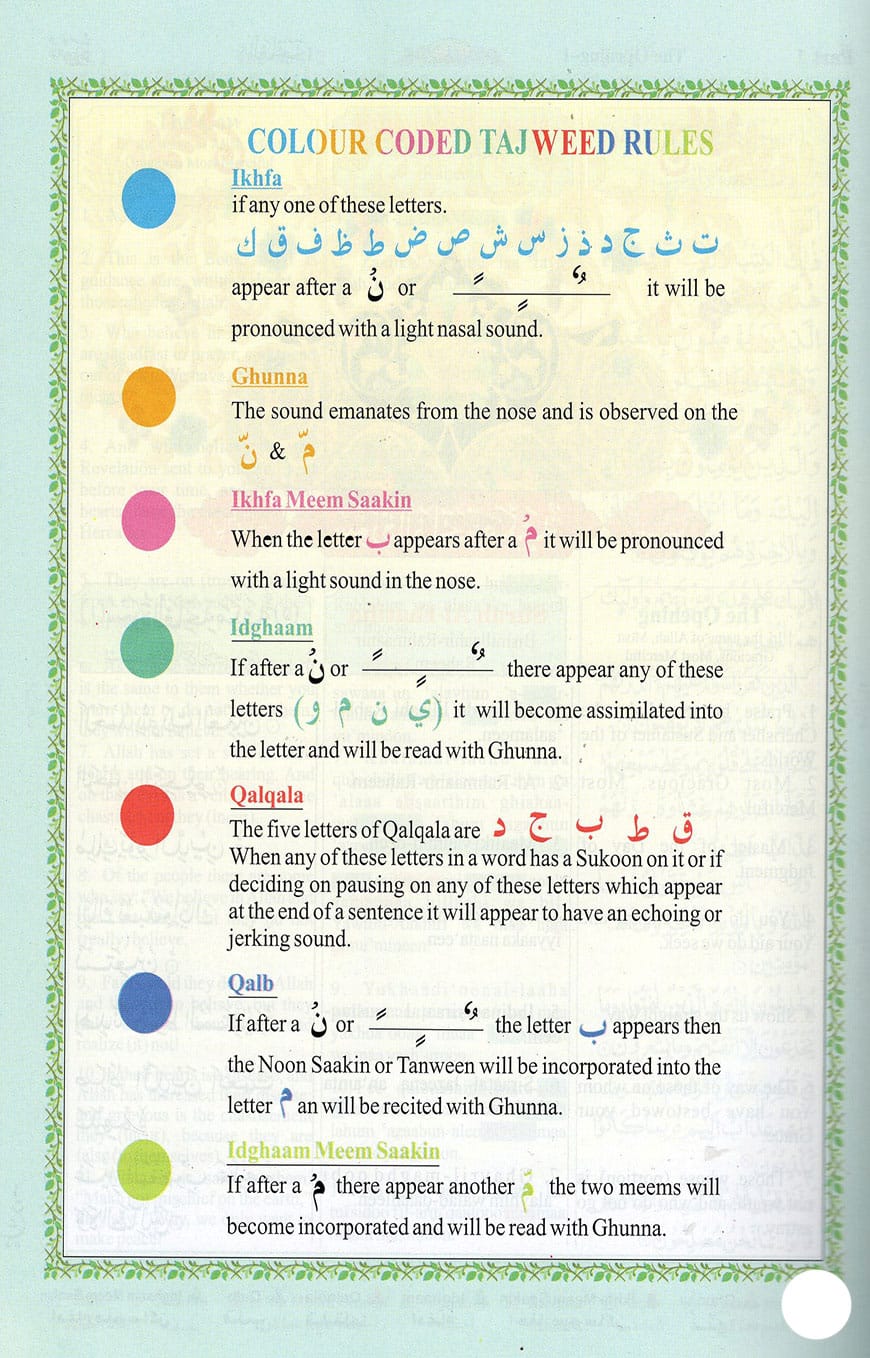 COLOUR CODED TAJWEED RULES
Ikhfa
if any one of these letters.
ت ث ج د ذ ز س ش ص ض ط ظ ف ق ك
appear after a نْ or ً ٍ ٌ it will be
pronounced with a light nasal sound.
Ghunna
The sound emanates from the nose and is observed on the
نّ & مّ
Ikhfa Meem Saakin
When the letter ب appears after a مْ it will be pronounced
with a light sound in the nose.
Idghaam
If after a نْ or ً ٍ ٌ there appear any of these
letters (ي ن م و) it will become assimilated into
the letter and will be read with Ghunna.
Qalqala
The five letters of Qalqala are ق ط ب ج د
When any of these letters in a word has a Sukoon on it or if
deciding on pausing on any of these letters which appear
at the end of a sentence it will appear to have an echoing or
jerking sound.
Qalb
If after a نْ or ً ٍ ٌ the letter ب appears then
the Noon Saakin or Tanween will be incorporated into the
letter م an will be recited with Ghunna.
Idghaam Meem Saakin
If after a مْ there appear another مّ the two meems will
become incorporated and will be read with Ghunna.